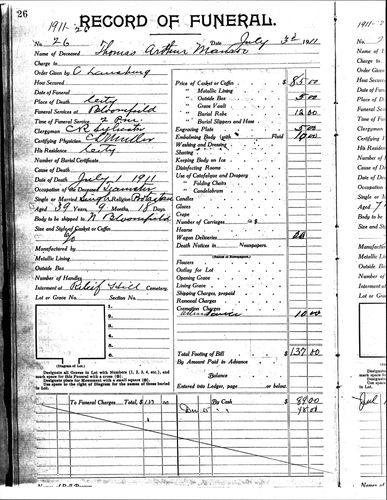 26
1911-26
RECORD OF FUNERAL.
No. 26 Date July 3d 1911
Name of Deceased Thomas Arthur
Charge to
Order Given by C
How Secured
Date of Funeral
Place of Death City
Funeral Services at Bloomfield
Time of Funeral Service 2 Pm.
Clergyman C R
Certifying Physician C
His Residence City
Number of Burial Certificate
Cause of Death
Date of Death July 1 1911
Occupation of the Deceased Teamster
Single or Married Single Religion Protestant
Aged 39 Years 9 Months 18 Days
Body to be shipped to N Bloomfield
Size and Style of Casket or Coffin
6/0
Manufactured by
Metallic Lining
Outside Box
Number of Handles
Interment at Relief Hill Cemetery
Lot or Grave No. Section No.
1.
2.
3.
4.
5.
6.
(Diagram of Lot.)
Designate all Graves in Lot with Numbers (1, 2, 3, 4, etc.), and mark space for this Funeral with a cross (⊕).
Designate place for Monument with a small square (⊕).
Use space to the right of Diagram for the names of those buried in Lot.
Price of Casket or Coffin $ 85.00
" Metallic Lining
" Outside Box 5.00
" Grave Vault
" Burial Robe 12.00
" Burial Slippers and Hose
Engraving Plate 5.00
Embalming Body (with Fluid 10.00
Washing and Dressing
Shaving
Keeping Body on Ice
Disinfecting Rooms
Use of Catafalque and Drapery
" Folding Chairs
" Candelabrum
Candles
Gloves
Crape
Number of Carriages @ $
Hearse
Wagon Deliveries
Death Notices in Newspapers.
(Names of Newspapers)
Flowers
Outlay for Lot
Opening Grave
Lining Grave
Shipping Charges, prepaid
Removal Charges
Cremation Charges
10.00
Total Footing of Bill $ 137.00
By Amount Paid in Advance
Balance
Entered into Ledger, page or below.
To Funeral Charges Total, $ 137 00 By Cash $ 89.00
48.00